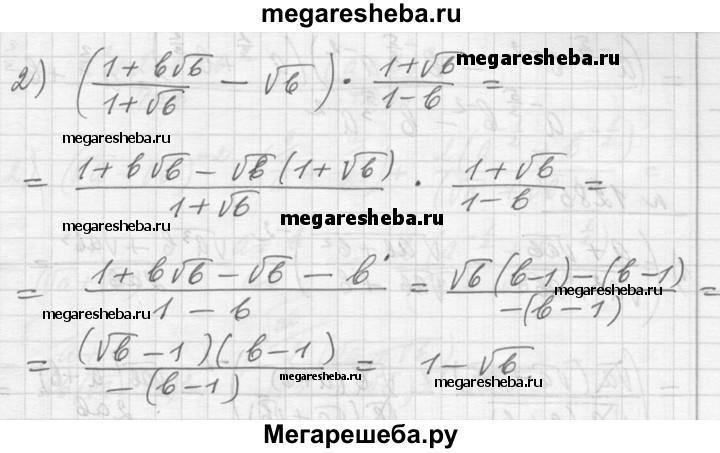 megaresheba.ru
2) ((1+b√b)/(1+√b) − √b) · (1+√b)/(1−b) =
megaresheba.ru
megaresheba.ru
= (1+b√b − √b(1+√b))/(1+√b) · (1+√b)/(1−b) =
megaresheba.ru
megaresheba.ru
= (1+b√b−√b−b)/(1−b) = (√b(b−1)−(b−1))/(−(b−1)) =
megaresheba.ru
megaresheba.ru
= ((√b−1)(b−1))/(−(b−1)) = 1−√b
megaresheba.ru
megaresheba.ru
Мегарешеба.ру